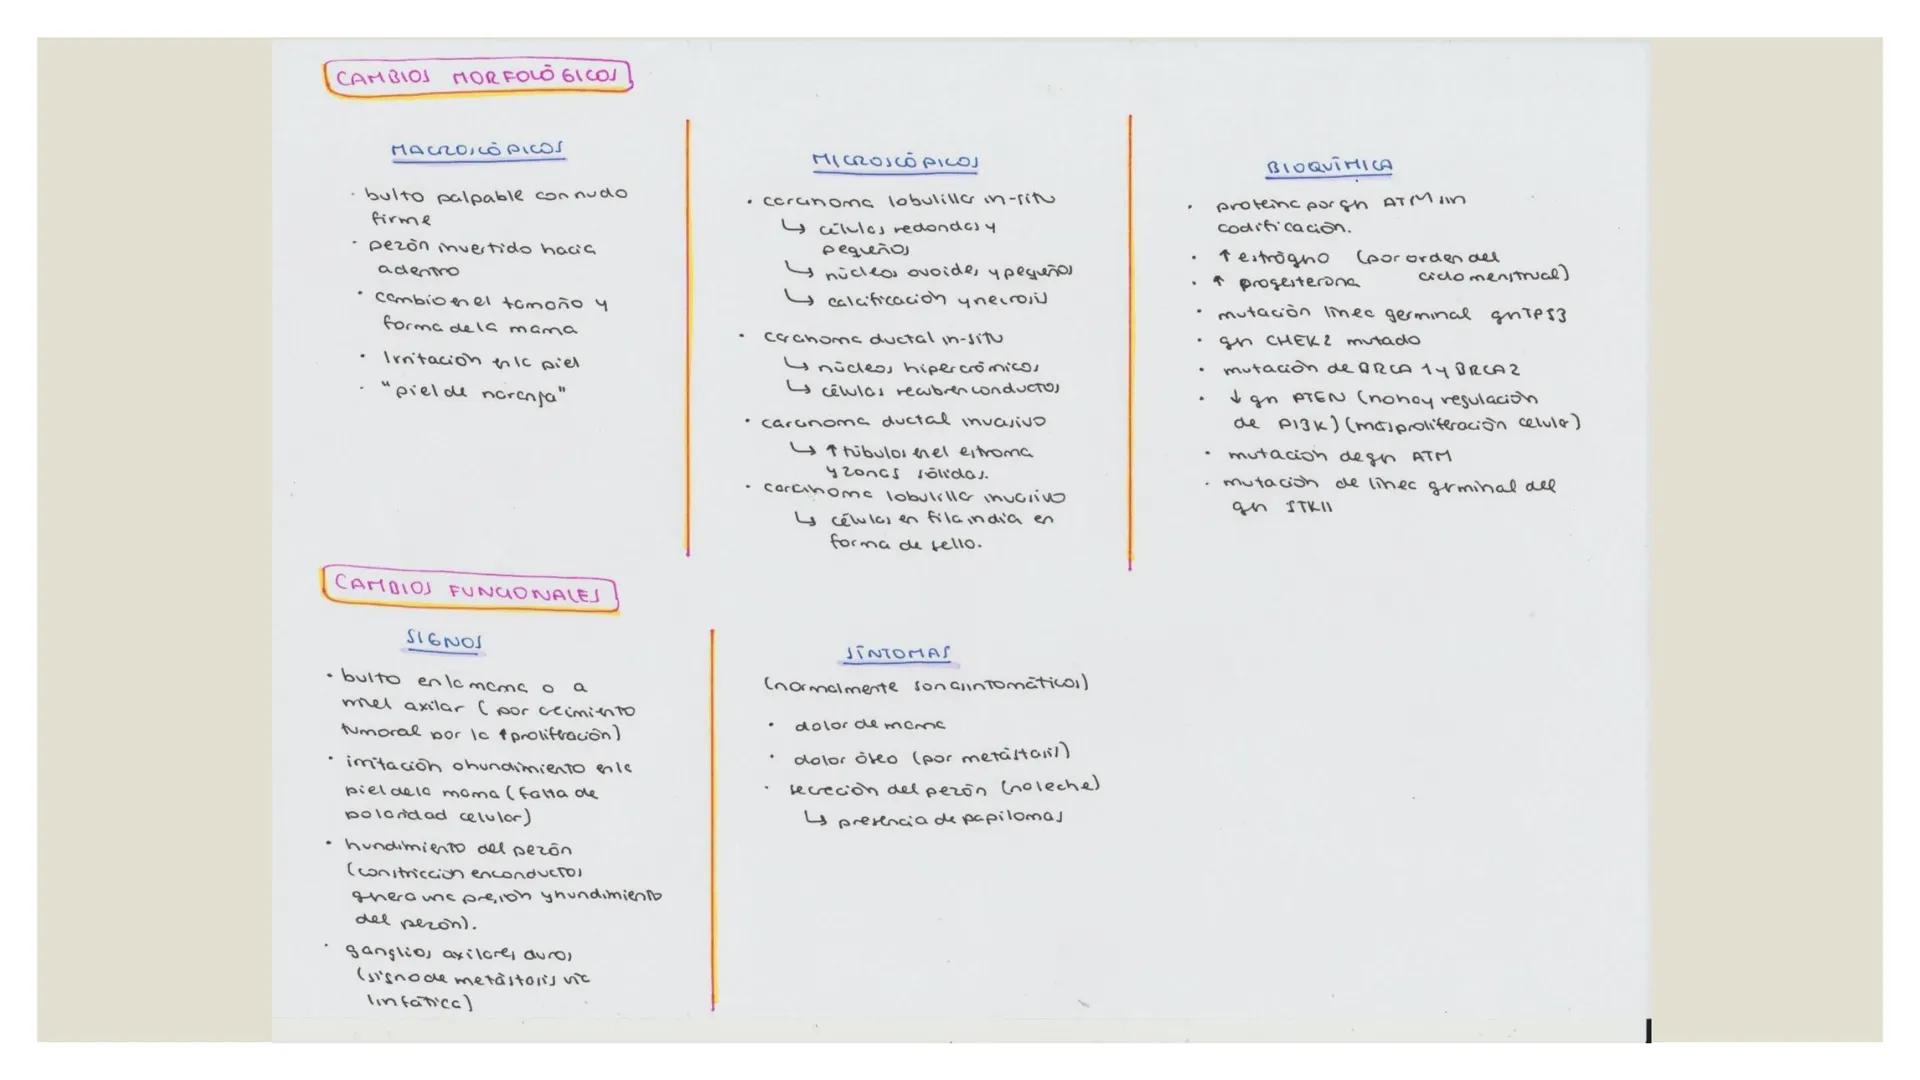 CAMBIOS MORFOLÓGICOS
MACROSCÓPICOS
· bulto palpable con nudo
firme
· pezón invertido hacia
adentro
· cambio en el tamaño y
forma de la mama
· Irritación en la piel
· "piel de naranja"
MICROSCÓPICOS
· carcinoma lobulillar in-situ
↳ células redondas y
pequeñas
↳ núcleos ovoides y pequeños
↳ calcificación y necrosis
· carcinoma ductal in-situ
↳ núcleos hipercrómicos
↳ células recubren conductos
· carcinoma ductal invasivo
↳ ↑ túbulos en el estroma
y zonas sólidas.
· carcinoma lobulillar invasivo
↳ células en fila india en
forma de sello.
BIOQUÍMICA
· proteína por gen ATM sin
codificación.
· ↑ estrógeno (por orden del
· ↑ progesterona ciclo menstrual)
· mutación línea germinal gen TP53
· gen CHEK2 mutado
· mutación de BRCA 1 y BRCA2
· ↓ gen PTEN (no hay regulación
de PI3K) (mas proliferación celular)
· mutación de gen ATM
· mutación de línea germinal del
gen STK11
CAMBIOS FUNCIONALES
SIGNOS
· bulto en la mama o a
nivel axilar (por crecimiento
tumoral por la ↑ proliferación)
· irritación o hundimiento en la
piel de la mama (falta de
polaridad celular)
· hundimiento del pezón
(constricción en conductos
genera una presión y hundimiento
del pezón).
· ganglios axilares duros
(signo de metástasis vía
linfática)
SÍNTOMAS
(normalmente son asintomáticos)
· dolor de mama
· dolor óseo (por metástasis)
· secreción del pezón (no leche)
↳ presencia de papilomas